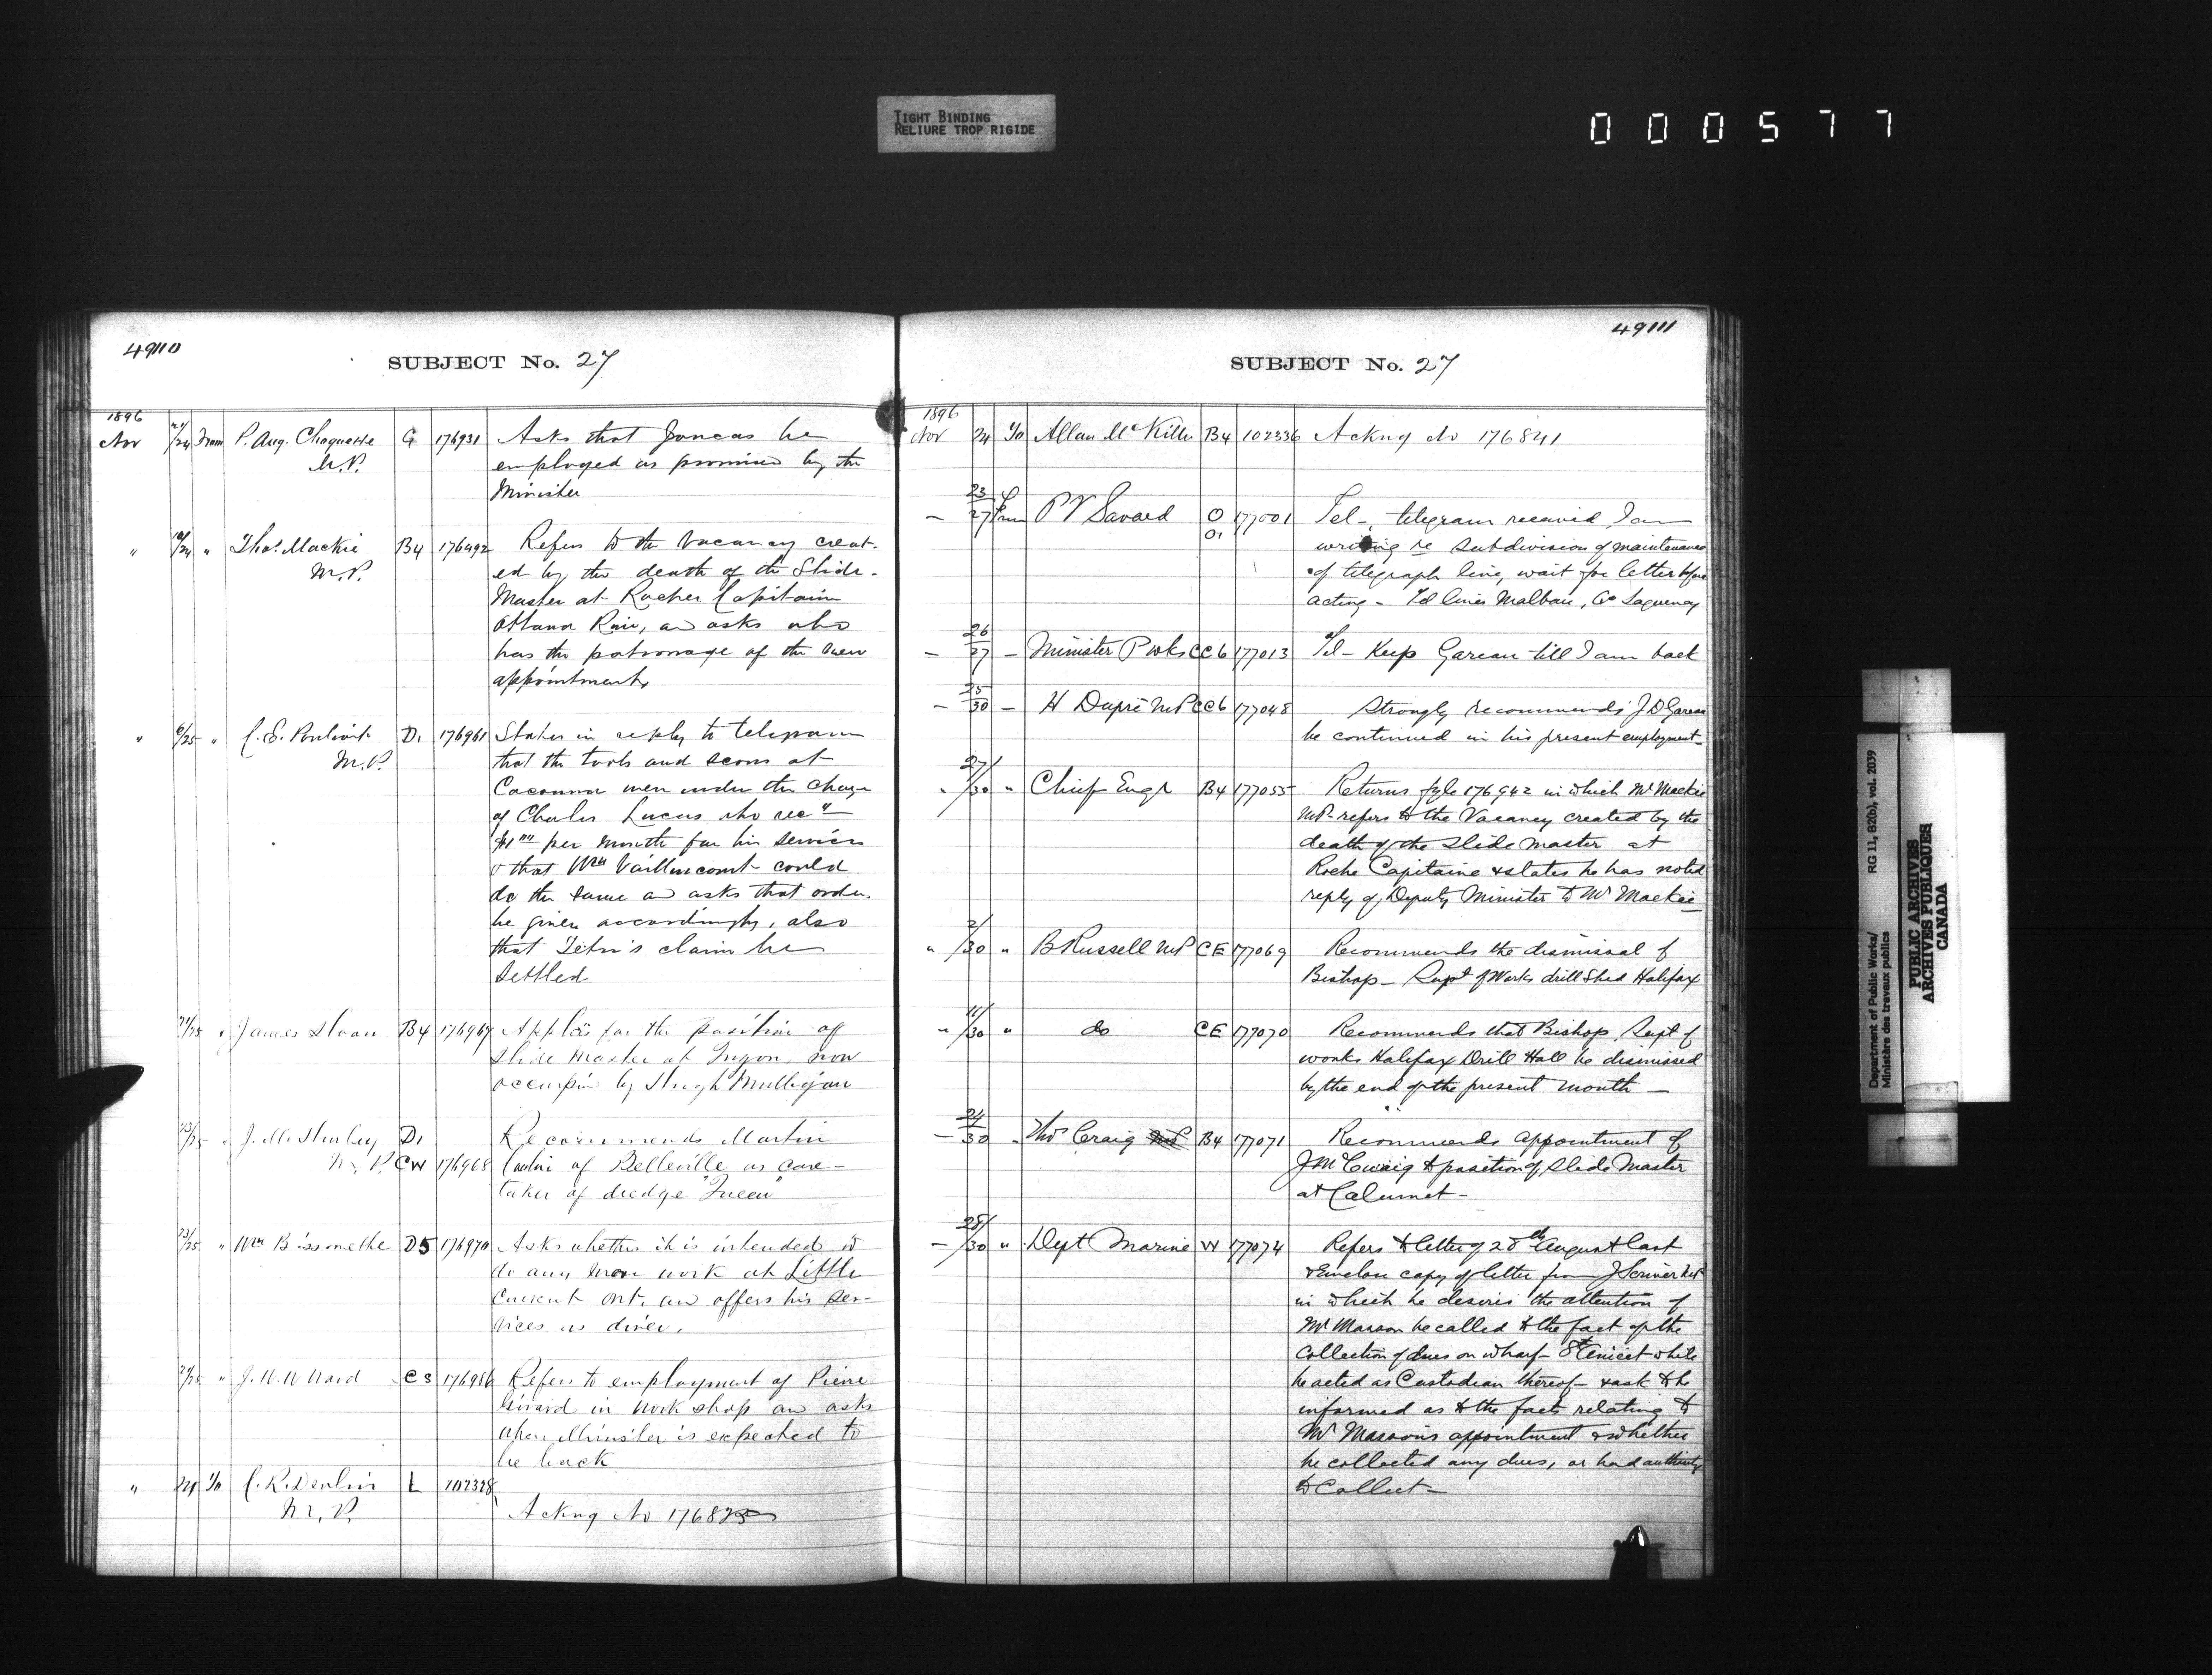 TIGHT BINDING
RELIURE TROP RIGIDE
000577
49110
SUBJECT No. 27
1896
Nov 21/24 From P. Aug. Choquette G 176931 Asks that Joncas be
M.P. employed as promised by the
Minister
" 18/24 " Thos. Mackie B4 176942 Refers to the vacancy creat-
M.P. ed by the death of the Slide-
Master at Rocher Capitaine
Ottawa River, and asks who
has the patronage of the new
appointment
" 6/25 " C. E. Pouliot D1 176961 States in reply to telegram
M.P. that the tools and scows at
Cacouna were under the charge
of Charles Lucas who recd
$1.00 per month for his services
& that Wm Vaillancourt could
do the same and asks that order
be given accordingly, also
that claim be
settled
21/25 " James Sloan B4 176967 Applies for the position of
Slide Master at now
occupied by Hugh Mulligan
23/25 " J. M. Hurley D1 Recommends Martin
M.P. CW 176968 of Belleville as care-
taker of dredge "Queen"
23/25 " Wm Bissonette D5 176970 Asks whether it is intended to
do any more work at Little
Current Ont. and offers his ser-
vices as diver.
24/25 " J. H. W. Ward CS 176986 Refers to employment of Pierre
in work shop and asks
when Minister is expected to
be back
" 24 To C. R. Devlin L 102328
M.P. Ackng No 176825
49111
SUBJECT No. 27
1896
Nov 24 To Allan McKillo B4 102336 Ackng No 176841
23
— 27 From P V Savard O 177001 Tel-, telegram received, I am
O1 writing re subdivision of maintenance
of telegraph line, wait for letter before
acting - Tel lines Malbaie, Co Saguenay
26
— 27 — Minister P Wks CC6 177013 Tel - Keep Gareau till I am back
25
— 30 — H Dupré MP CC6 177048 Strongly recommends J D Gareau
be continued in his present employment-
27/
" /30 " Chief Engr B4 177055 Returns fyle 176942 in which Mr Mackie
M.P. refers to the Vacancy created by the
death of the slide master at
Roche Capitaine & states he has noted
reply of Deputy Minister to Mr Mackie
2/
" /30 " B Russell MP CE 177069 Recommends the dismissal of
Bishop - Supt of Works drill Shed Halifax
11/
" /30 " do CE 177070 Recommends that Bishop, Supt of
works Halifax Drill Hall be dismissed
by the end of the present month —
24
— 30 - Thos Craig B4 177071 Recommends appointment of
J McCuaig to position of Slide Master
at Calumet -
28/
— /30 " Dept Marine W 177074 Refers to letter of 28th August last
& Enclose copy of letter from J Scriver MP
in which he desires the attention of
Mr Masson be called to the fact of the
Collection of dues on wharf St Anicet while
he acted as Custodian thereof & ask to be
informed as to the facts relating to
Mr Masson's appointment & whether
he collected any dues, or had authority
to Collect -
Department of Public Works/
Ministère des travaux publics
RG 11, B2(b), vol. 2039
PUBLIC ARCHIVES
ARCHIVES PUBLIQUES
CANADA